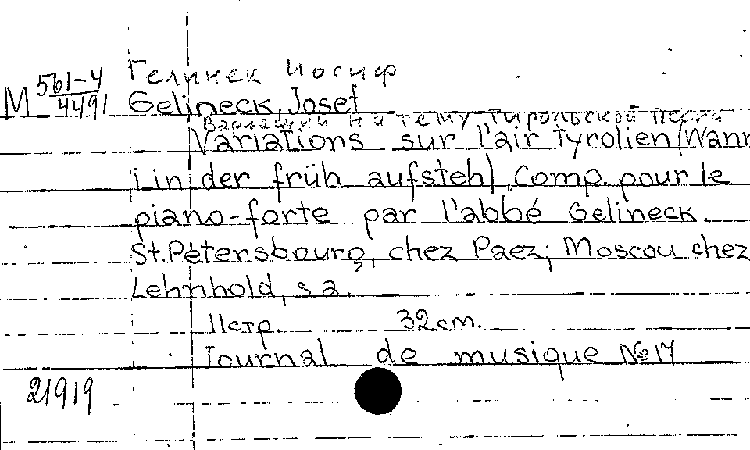 М 561-4/4491
Гелинек Иосиф
Gelineck, Josef
Вариации на тему тирольской песни
Variations sur l'air Tyrolien (Wann
i in der früh aufsteh). Comp. pour le
piano-forte par l'abbé Gelineck.
St. Pétersbourg, chez Paez; Moscou chez
Lehnhold, s.a.
11 стр. 32 cm.
Journal de musique № 17
21919